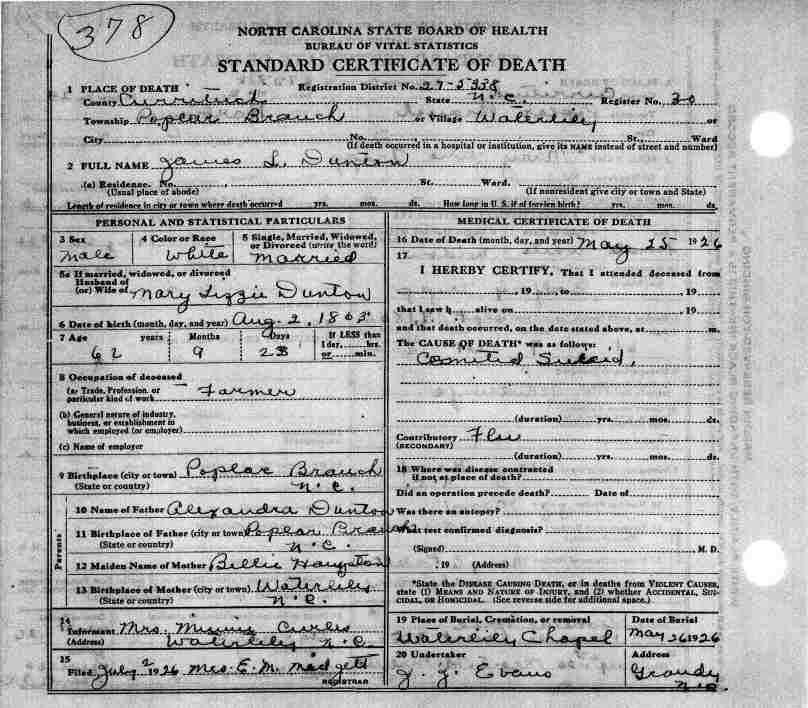 378
NORTH CAROLINA STATE BOARD OF HEALTH
BUREAU OF VITAL STATISTICS
STANDARD CERTIFICATE OF DEATH
1 PLACE OF DEATH Registration District No. 27-5338
County Currituck State N.C. Register No. 30
Township Poplar Branch or Village Waterlily or
City No. St., Ward
(If death occurred in a hospital or institution, give its NAME instead of street and number)
2 FULL NAME James L. Dunton
(a) Residence. No. St. Ward.
(Usual place of abode) (If nonresident give city or town and State)
Length of residence in city or town where death occurred yrs. mos. ds. How long in U. S. if of foreign birth? yrs. mos. ds.
PERSONAL AND STATISTICAL PARTICULARS
3 Sex 4 Color or Race 5 Single, Married, Widowed, or Divorced (write the word)
Male White Married
5a If married, widowed, or divorced
Husband of
(or) Wife of Mary Lizzie Dunton
6 Date of birth (month, day, and year) Aug. 2, 1863
7 Age years Months Days If LESS than
1 day, hrs.
62 9 23 or min.
8 Occupation of deceased
(a) Trade, Profession, or
particular kind of work Farmer
(b) General nature of industry,
business, or establishment in
which employed (or employer)
(c) Name of employer
9 Birthplace (city or town) Poplar Branch
(State or country) N.C.
Parents
10 Name of Father Alexandra Dunton
11 Birthplace of Father (city or town) Poplar Branch
(State or country) N.C.
12 Maiden Name of Mother Billie
13 Birthplace of Mother (city or town) Waterlily
(State or country) N.C.
14
Informant Mrs. Minnie Curles
(Address) Waterlily N.C.
15
Filed July 2 1926 Mrs. E. M. Midgett
REGISTRAR
MEDICAL CERTIFICATE OF DEATH
16 Date of Death (month, day, and year) May 25 1926
17
I HEREBY CERTIFY, That I attended deceased from
, 19 , to , 19
that I saw h alive on , 19
and that death occurred, on the date stated above, at m.
The CAUSE OF DEATH* was as follows:
Comited Sucid,
(duration) yrs. mos. ds.
Contributory Flu
(SECONDARY)
(duration) yrs. mos. ds.
18 Where was disease contracted
if not at place of death?
Did an operation precede death? Date of
Was there an autopsy?
What test confirmed diagnosis?
(Signed) M. D.
, 19 (Address)
*State the DISEASE CAUSING DEATH, or in deaths from VIOLENT CAUSES,
state (1) MEANS AND NATURE OF INJURY, and (2) whether ACCIDENTAL, SUI-
CIDAL, OR HOMICIDAL. (See reverse side for additional space.)
19 Place of Burial, Cremation, or removal Date of Burial
Waterlily Chapel May 26 1926
20 Undertaker Address
J. J. Evans Grandy
N.C.